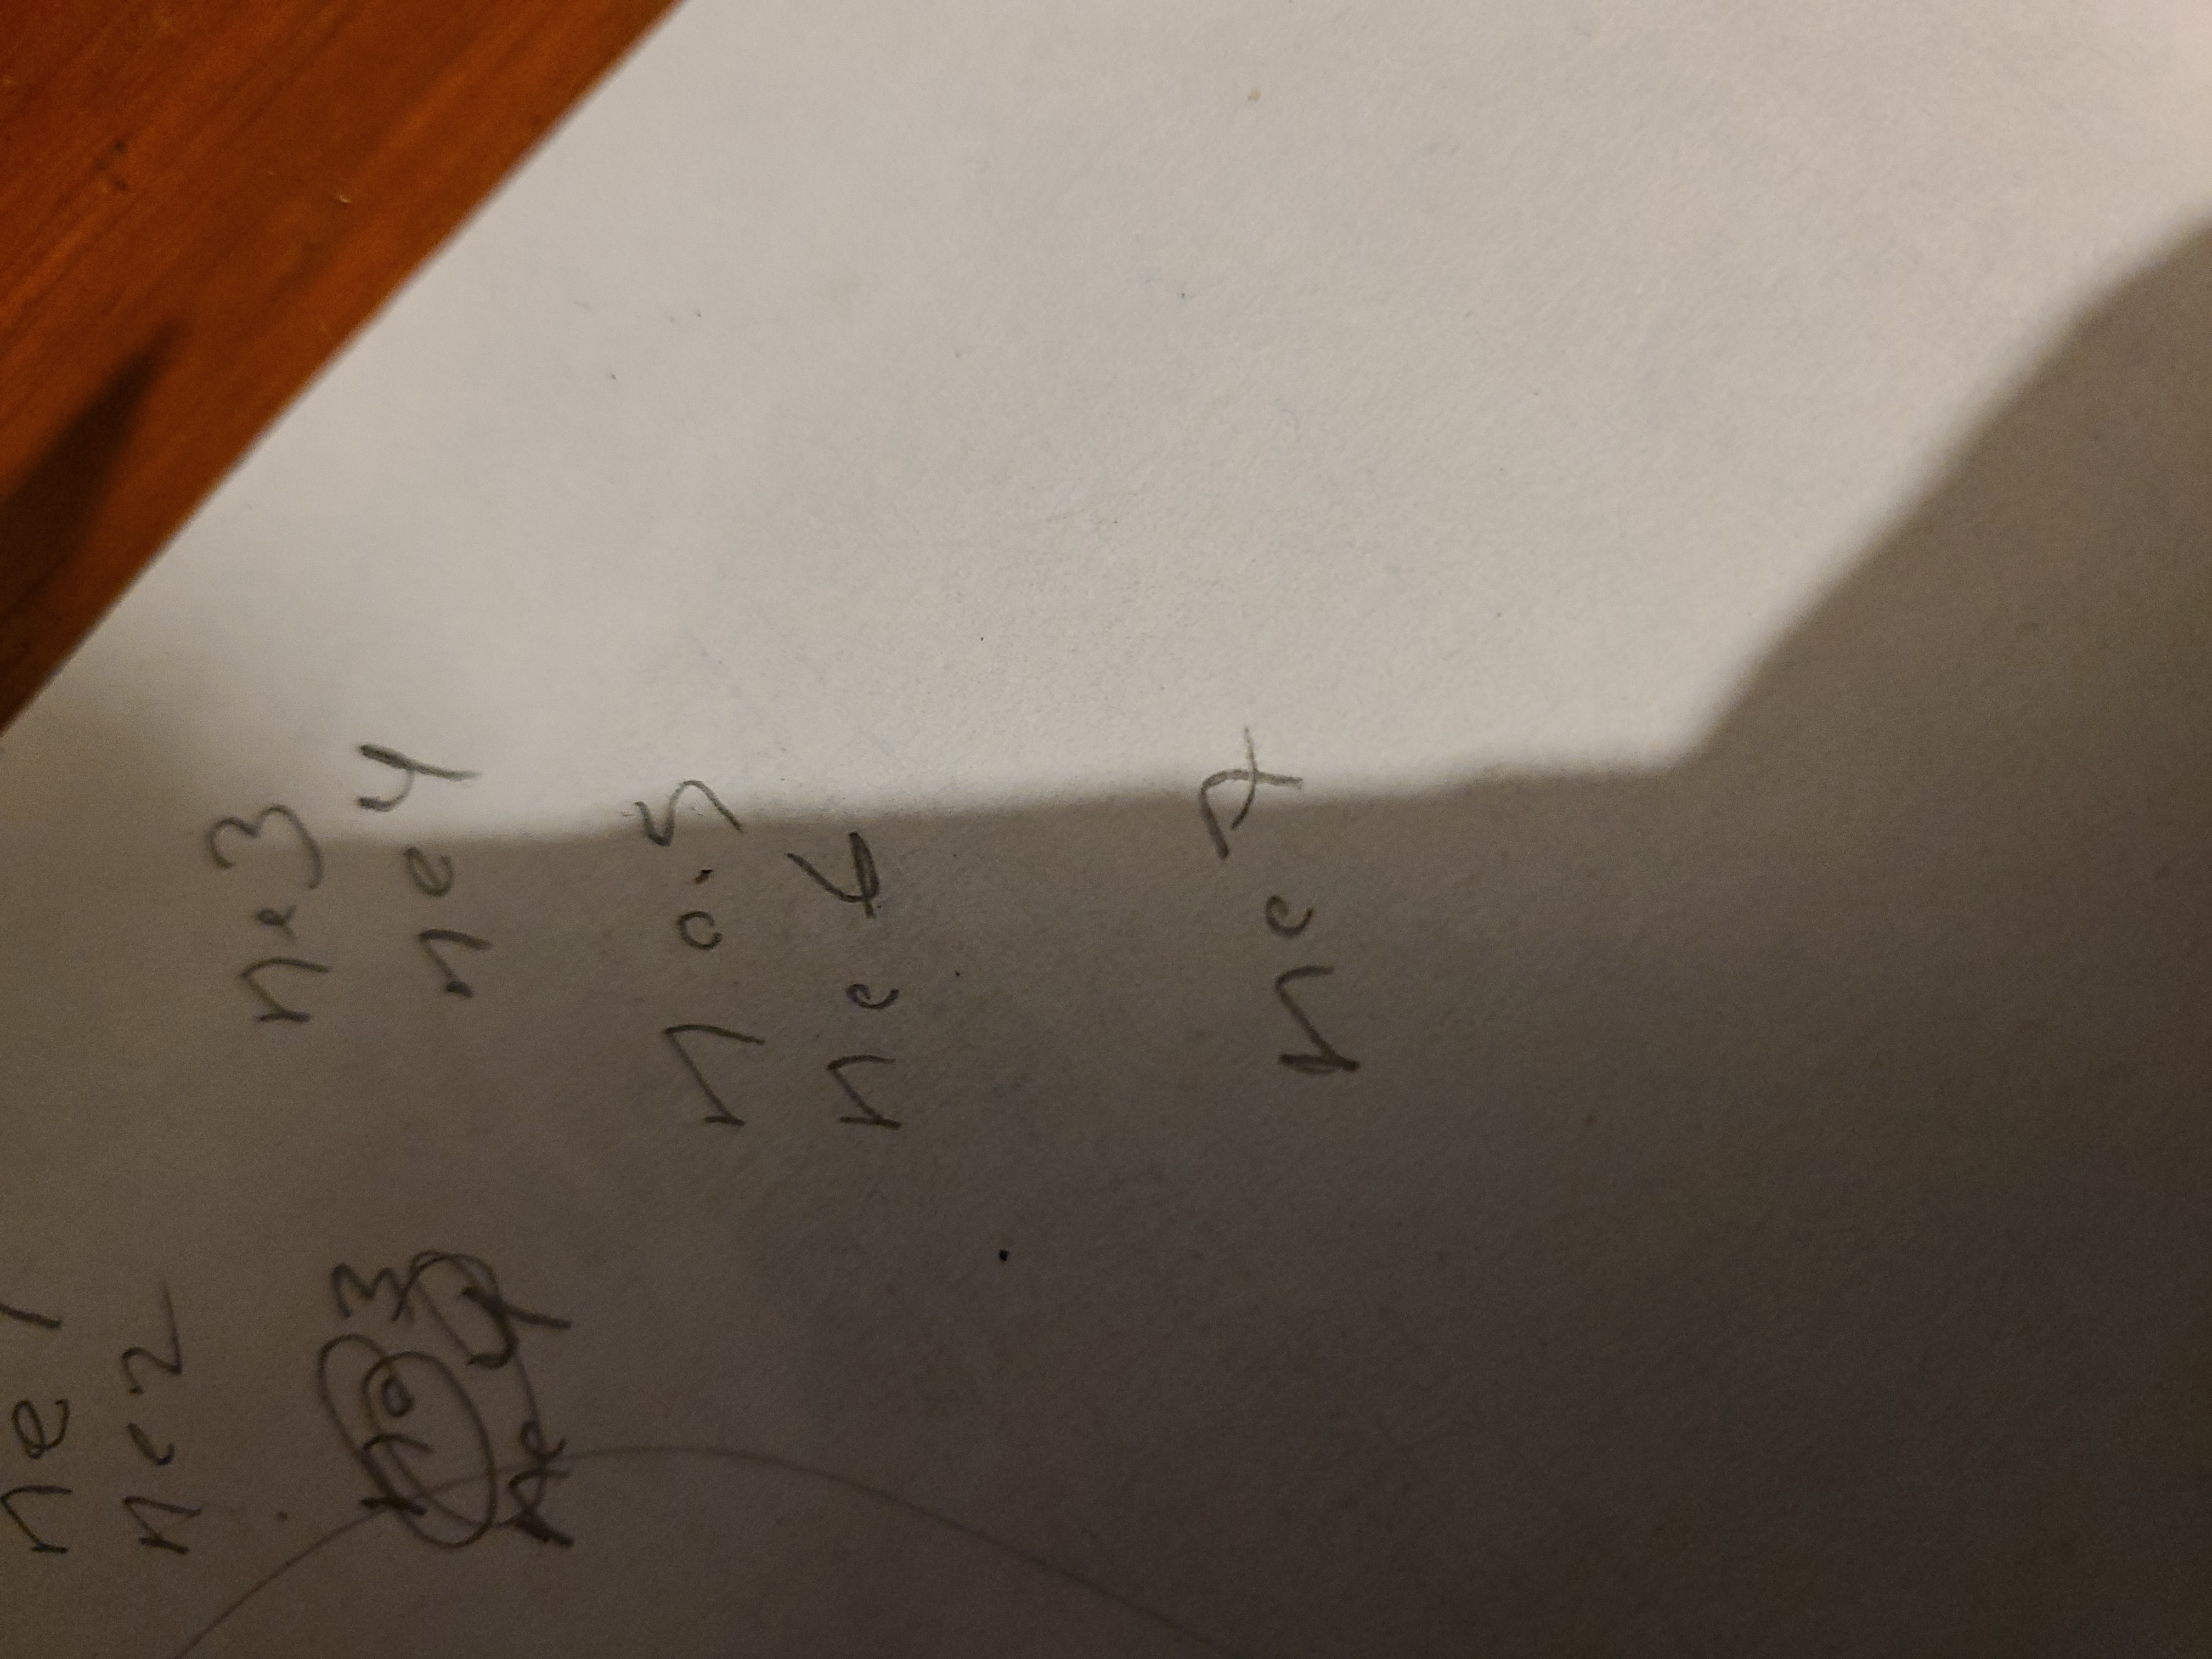 ne 1
ne 2
ne 3
ne 4
ne 3
ne 4
n o.5
ne 6
ne 7